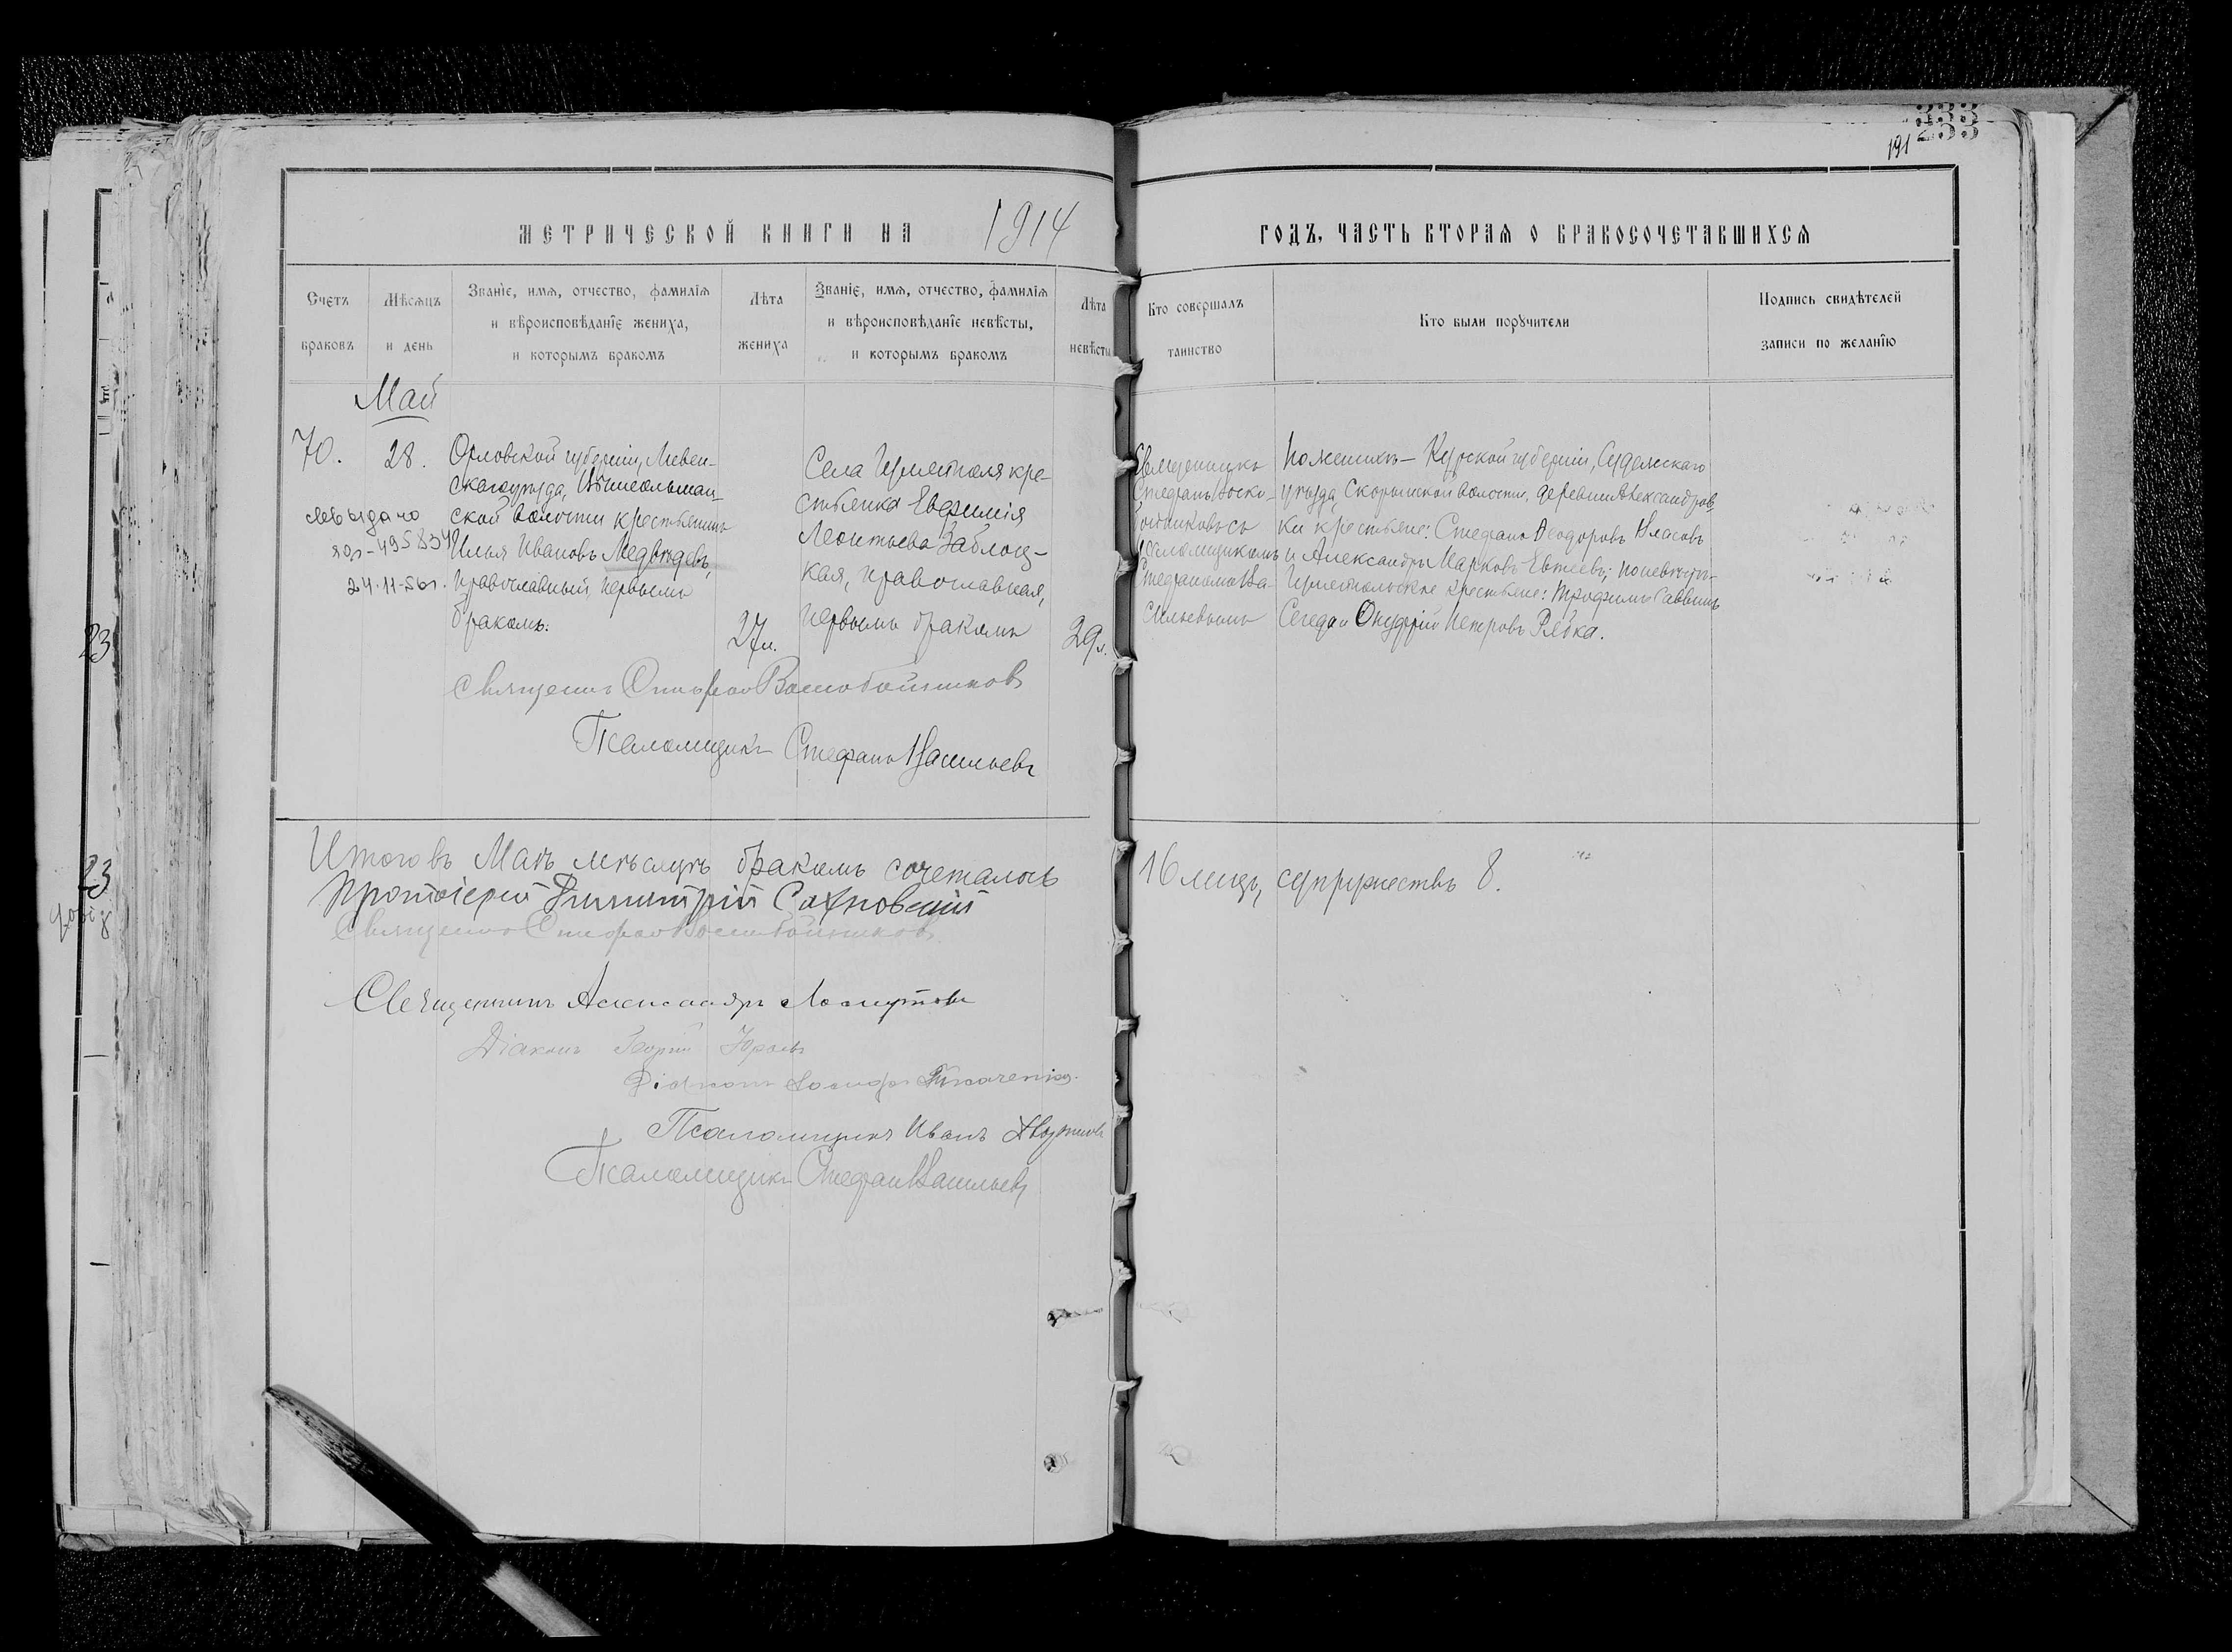 333
233
191
МЕТРИЧЕСКОЙ КНИГИ НА 1914 ГОДЪ, ЧАСТЬ ВТОРАЯ О БРАКОСОЧЕТАВШИХСЯ
Счетъ
браковъ
Мѣсяцъ
и день
Званіе, имя, отчество, фамилія
и вѣроисповѣданіе жениха,
и которымъ бракомъ
Лѣта
жениха
Званіе, имя, отчество, фамилія
и вѣроисповѣданіе невѣсты,
и которымъ бракомъ
Лѣта
невѣсты
Кто совершалъ
таинство
Кто были поручители
Подпись свидѣтелей
записи по желанію
Май
70.
28.
св выдано
495834
24.11-56г.
Орловской губерніи, Ливен-
скаго уѣзда,
ской волости крестьянинъ
Илья Ивановъ Медвѣдевъ,
православный, первымъ
бракомъ.
27 л.
Села Измаиля кре-
стьянка Евфимія
Леонтьева Заблоц-
кая, православная,
первымъ бракомъ
29 л.
Священникъ
Стефанъ Воско-
бойниковъ съ
псаломщикомъ
Стефаномъ Ва-
сильевымъ
По женихѣ — Курской губерніи, Суджскаго
уѣзда, волости, деревни Александров-
ки крестьяне: Стефанъ Ѳеодоровъ Власовъ
и Александръ Марковъ Евтеевъ; по невѣстѣ —
крестьяне: Трофимъ Саввинъ
Сегеда и Онуфрій Петровъ Рябка.
Священникъ Стефанъ Воскобойниковъ
Псаломщикъ Стефанъ Васильевъ
Итого въ Маѣ мѣсяцѣ бракомъ сочеталось 16 лицъ, супружествъ 8.
Протоіерей Димитрій Сахновскій
Священникъ Стефанъ Воскобойниковъ
Священникъ Александръ
Діаконъ Георгій
Діаконъ Іосифъ
Псаломщикъ Иванъ
Псаломщикъ Стефанъ Васильевъ
23
23
8